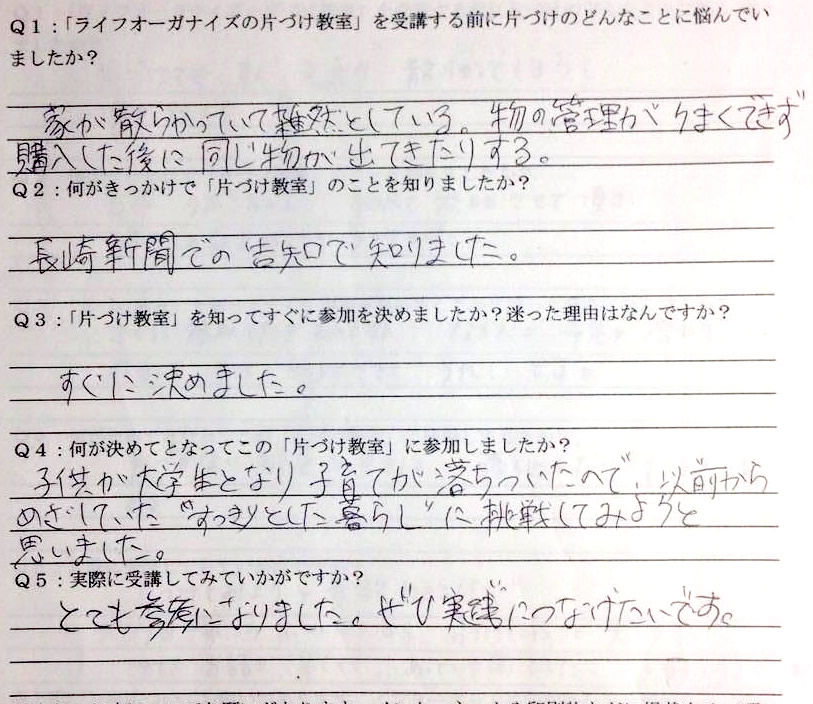 Q1：「ライフオーガナイズの片づけ教室」を受講する前に片づけのどんなことに悩んでい
ましたか？
家が散らかっていて雑然としている。物の管理がうまくできず
購入した後に同じ物が出てきたりする。
Q2：何がきっかけで「片づけ教室」のことを知りましたか？
長崎新聞での告知で知りました。
Q3：「片づけ教室」を知ってすぐに参加を決めましたか？迷った理由はなんですか？
すぐに決めました。
Q4：何が決めてとなってこの「片づけ教室」に参加しましたか？
子供が大学生となり子育てが落ちついたので、以前から
めざしていた"すっきりとした暮らし"に挑戦してみようと
思いました。
Q5：実際に受講してみていかがですか？
とても参考になりました。ぜひ実践につなげたいです。